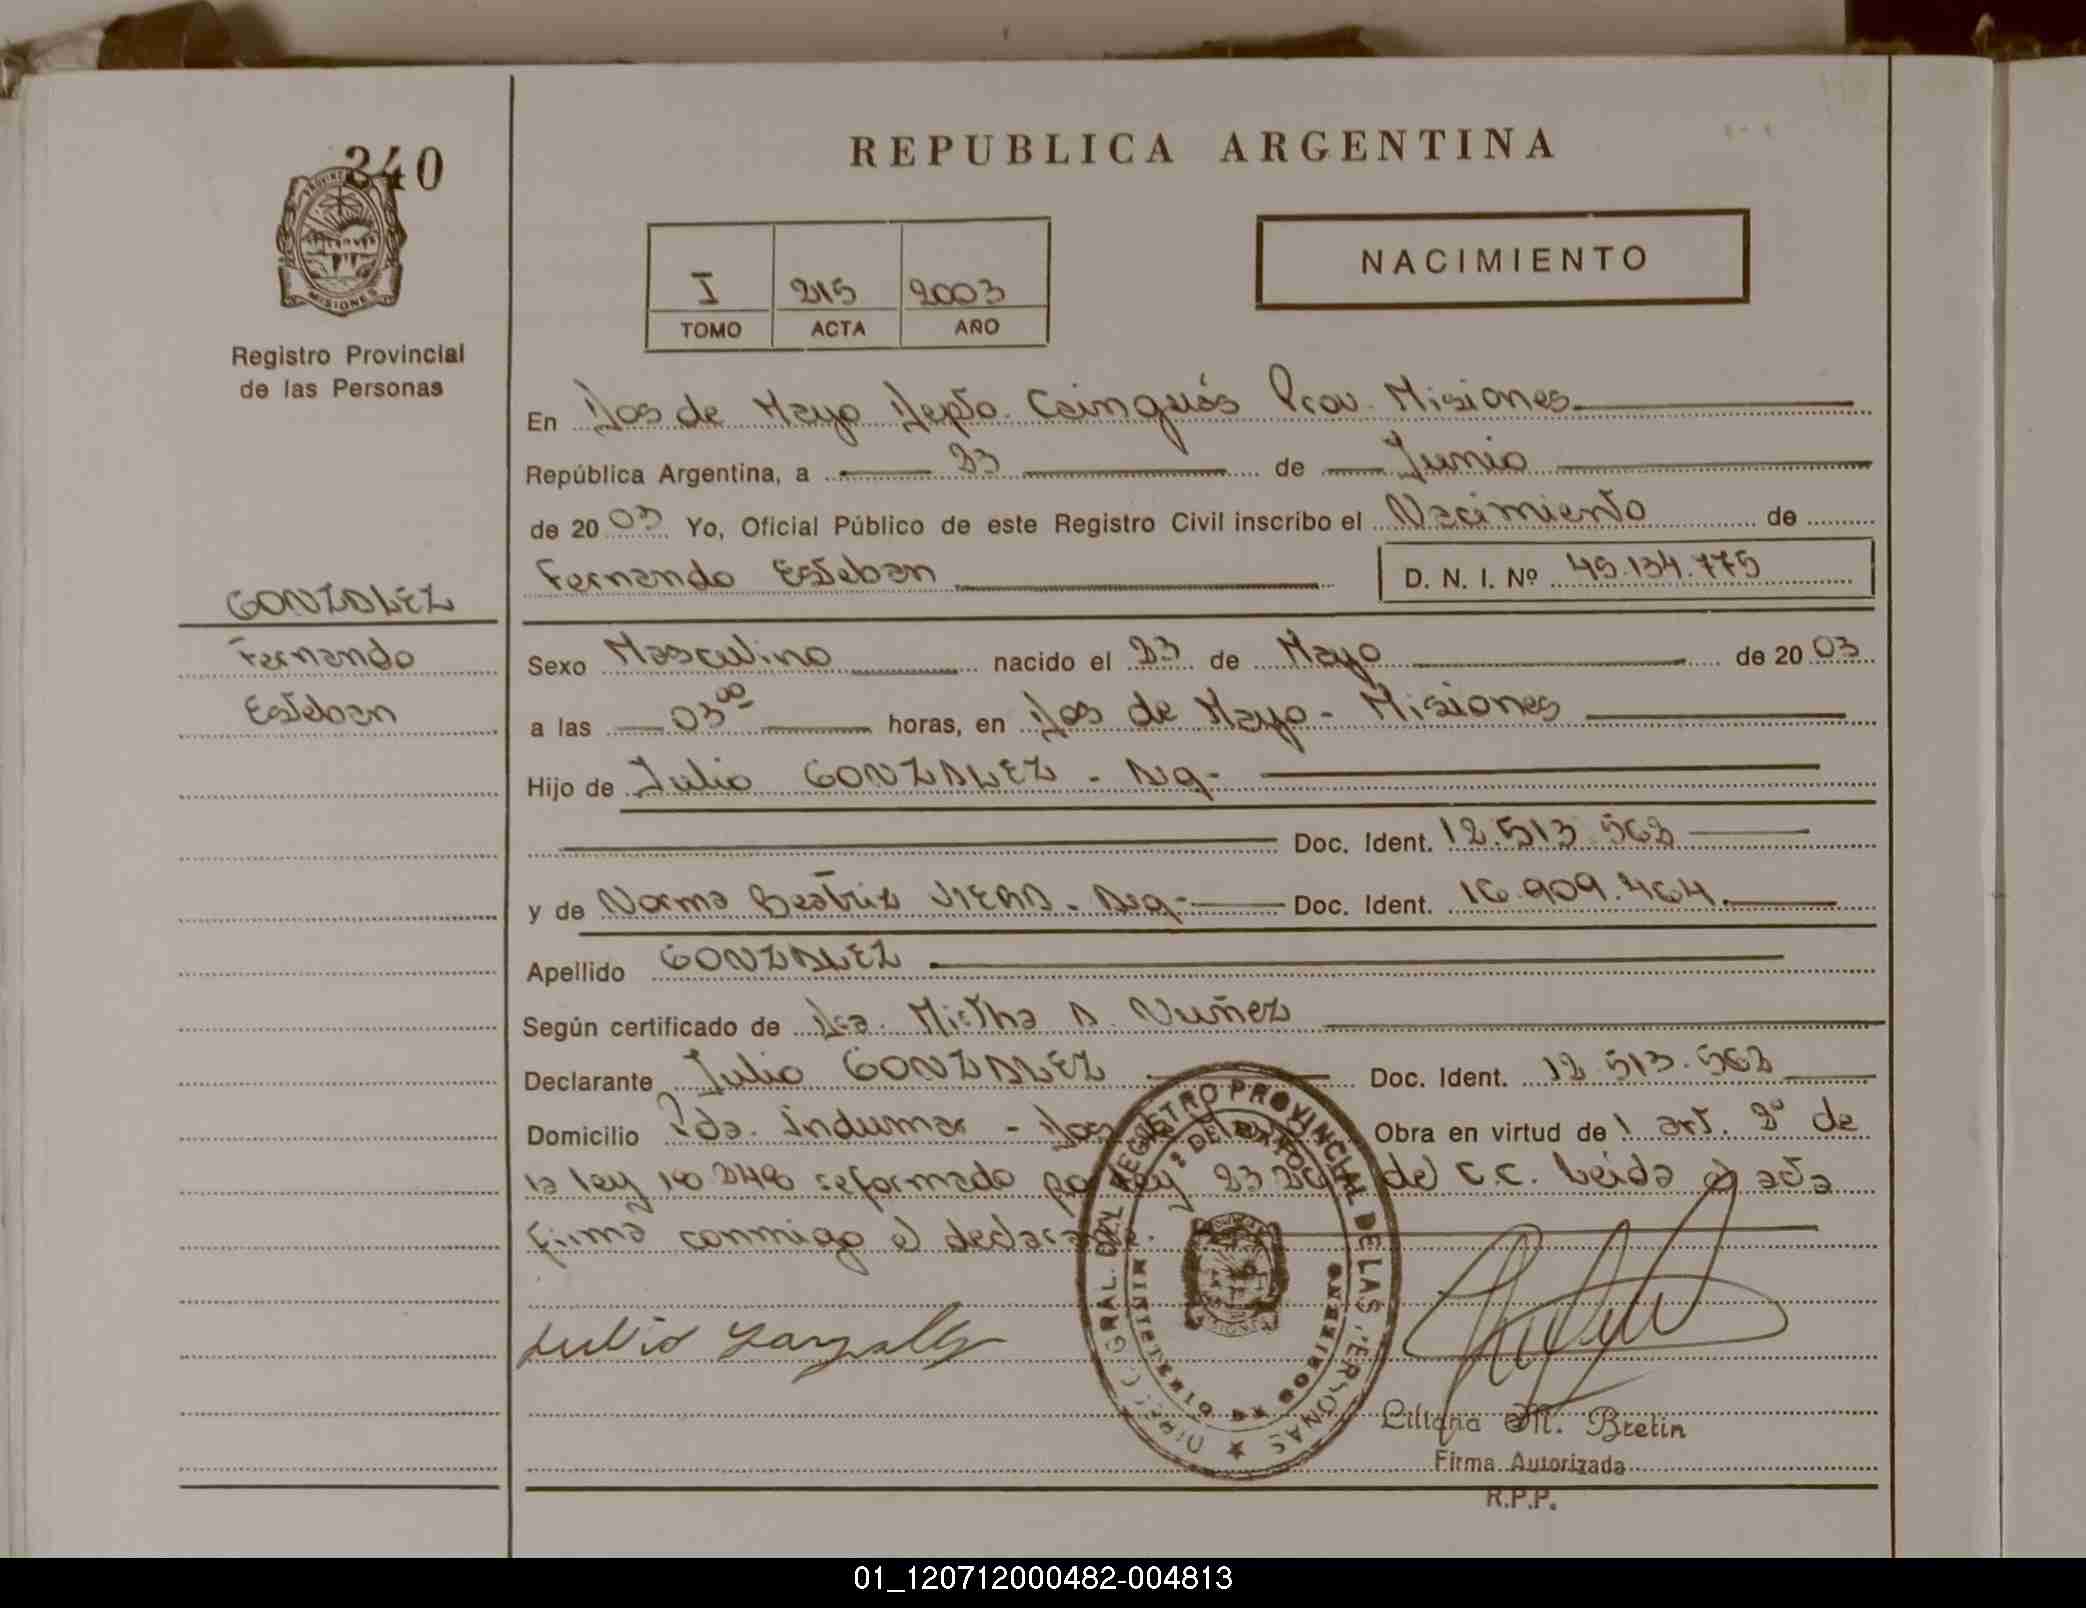 REPUBLICA ARGENTINA
240
PROVINCIA
MISIONES
Registro Provincial
de las Personas
I 215 2003
TOMO ACTA AÑO
NACIMIENTO
En Dos de Mayo Depto. Cainguás Prov. Misiones
República Argentina, a 23 de Junio
de 2003 Yo, Oficial Público de este Registro Civil inscribo el Nacimiento de
Fernando Esteban D. N. I. Nº 45.134.775
GONZALEZ
Fernando
Esteban
Sexo Masculino nacido el 23 de Mayo de 2003
a las 03⁰⁰ horas, en Dos de Mayo - Misiones
Hijo de Julio GONZALEZ - Arg -
Doc. Ident. 12.513.562
y de Norma Beatriz VIERA - Arg - Doc. Ident. 16.909.464
Apellido GONZALEZ
Según certificado de Dra. Mirtha A. Nuñez
Declarante Julio GONZALEZ Doc. Ident. 12.513.562
Domicilio Pda. Indumar - Dos de Mayo Obra en virtud de l art. 2º de
la ley 18248 reformado por ley 23 del C.C. Leida el acta
firma conmigo el declarante.
Julio Gonzalez
DIRECC. GRAL. DEL REGISTRO PROVINCIAL DE LAS PERSONAS
2 DE MAYO
MISIONES
Liliana M. Bretin
Firma Autorizada
R.P.P.
01_120712000482-004813